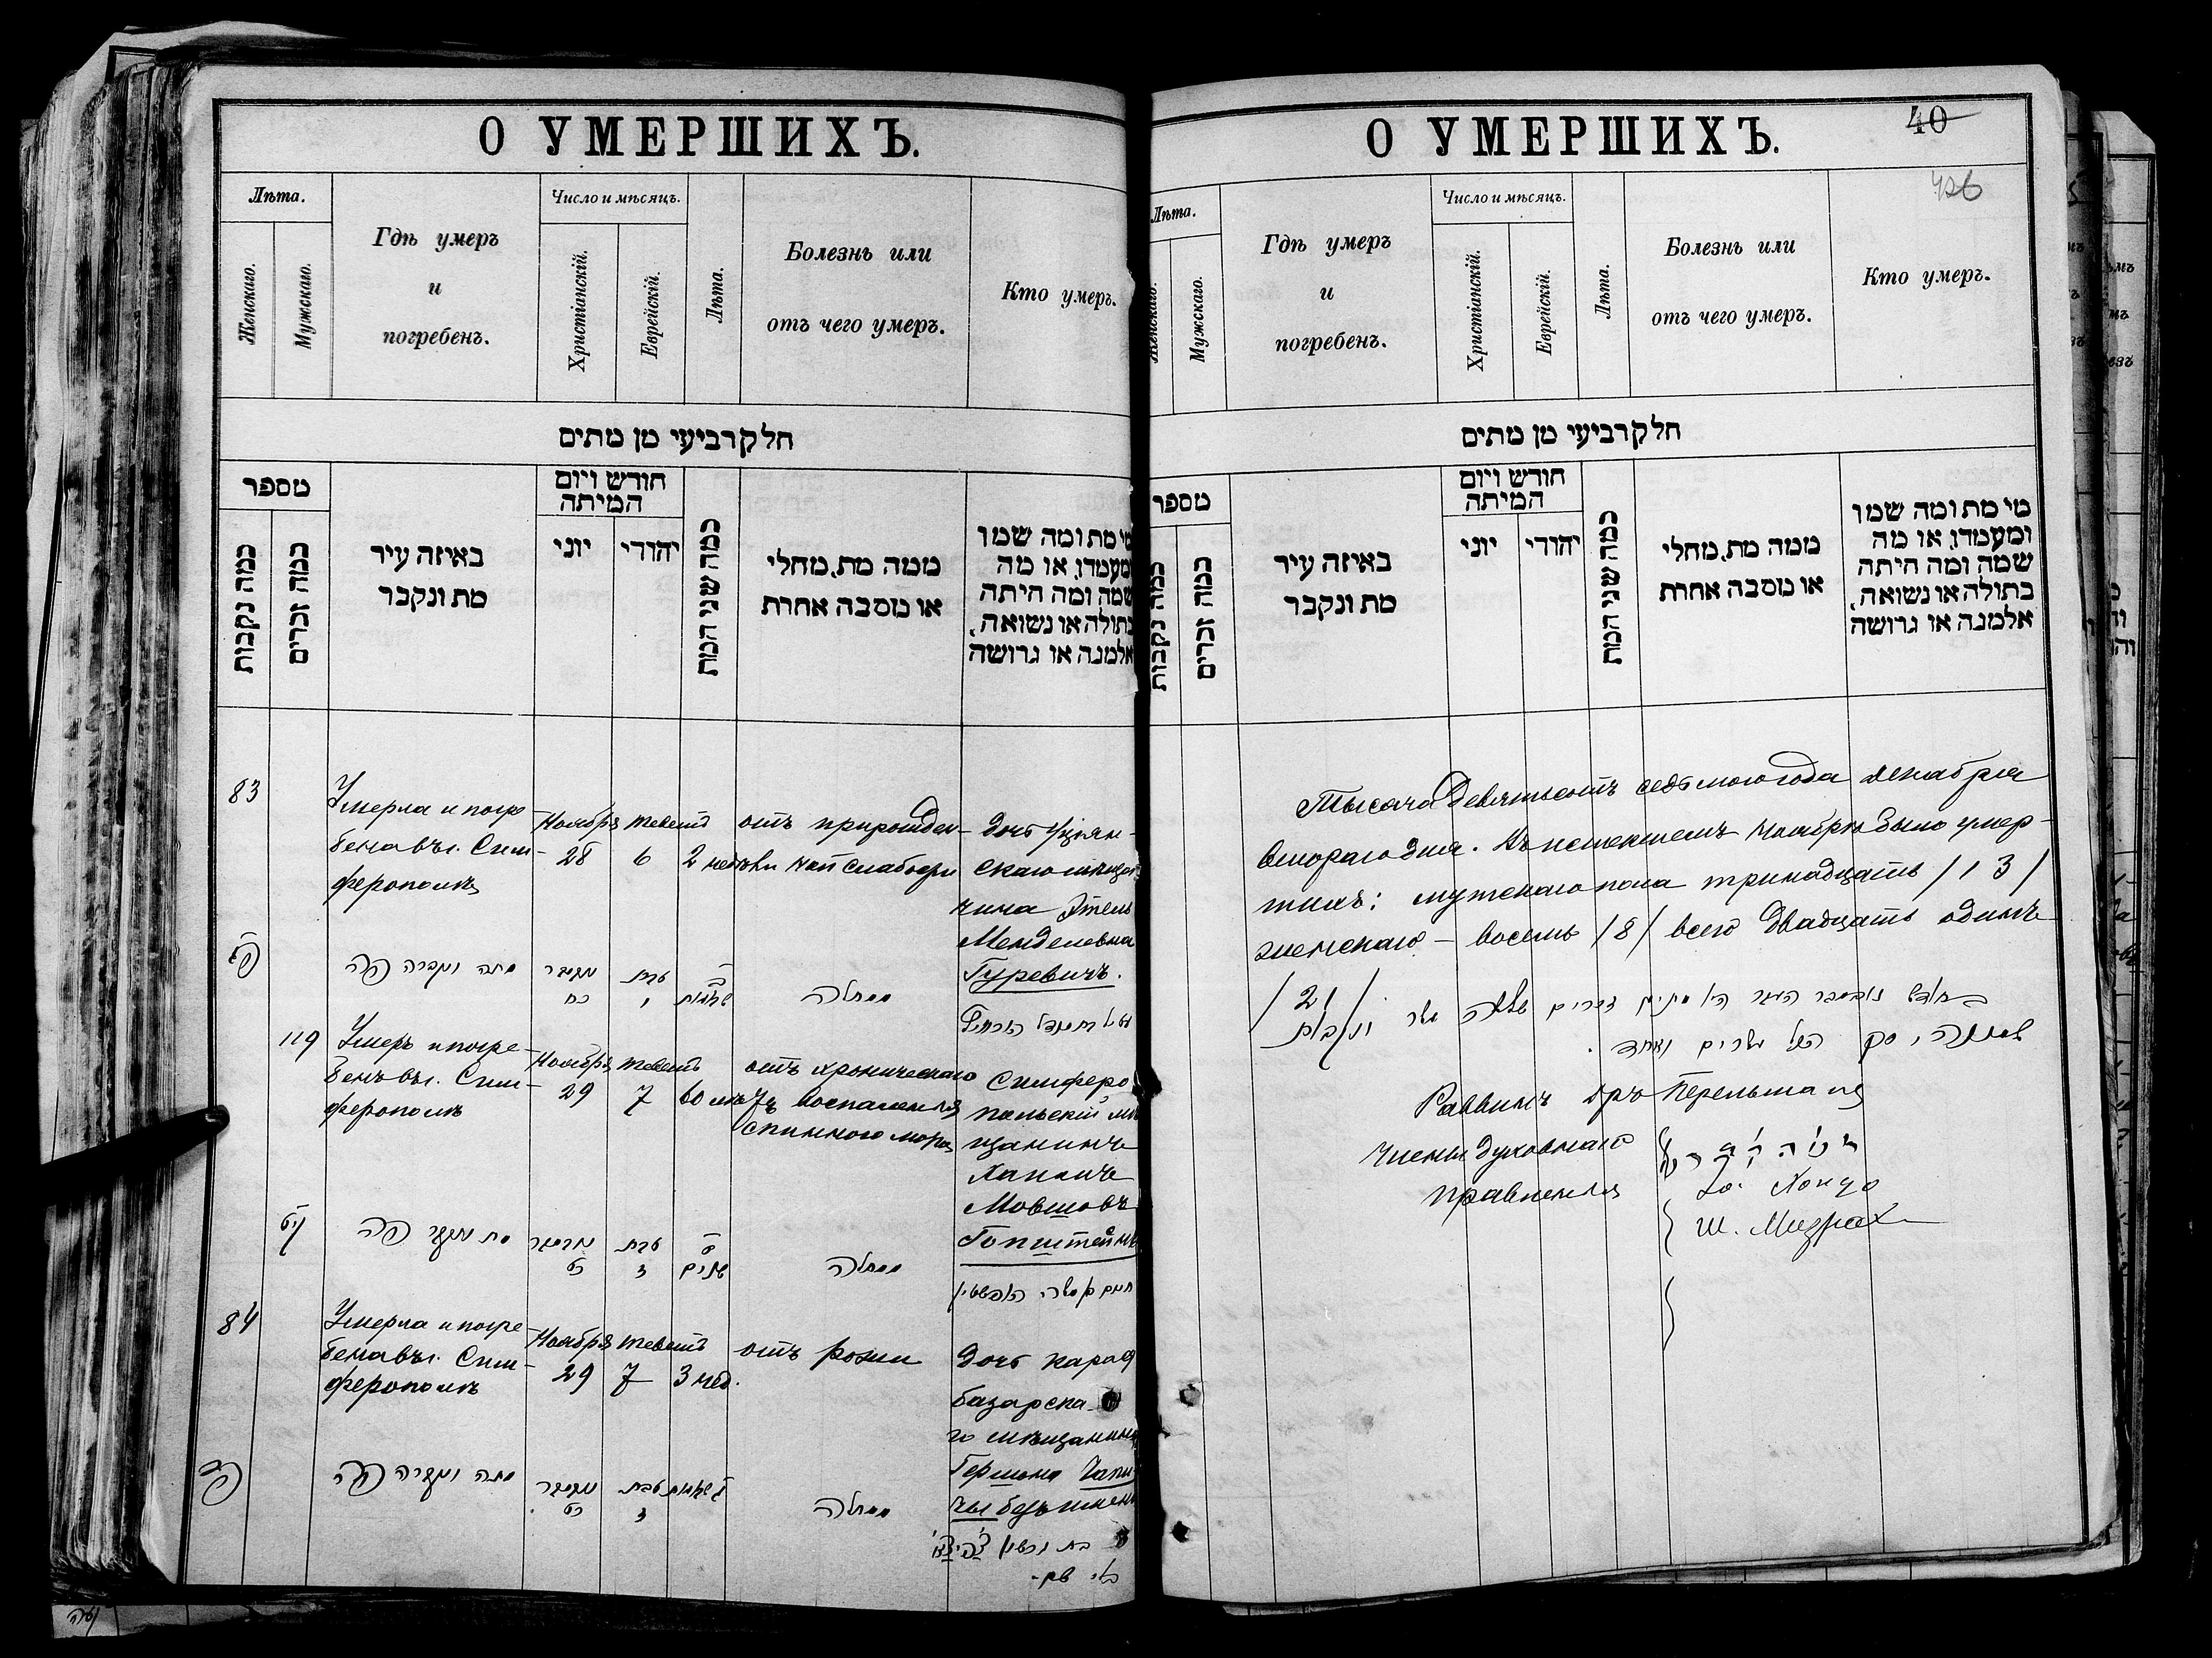 О УМЕРШИХЪ.
Лѣта.
Женскаго.
Мужскаго.
Гдѣ умеръ
и
погребенъ.
Число и мѣсяцъ.
Христіанскій.
Еврейскій.
Лѣта.
Болезнь или
отъ чего умеръ.
Кто умеръ.
חלק רביעי מן מתים
מספר
כמה נקבות
כמה זכרים
באיזה עיר
מת ונקבר
חודש ויום
המיתה
יוני
יהודי
כמה שני המת
ממה מת, מחלי
או מסבה אחרת
מי מת ומה שמו
ומעמדו, או מה
שמה ומה היתה
בתולה או נשואה,
אלמנה או גרושה
83
Умерла и погре
бена въ г. Сим-
ферополѣ
Ноября
28
Теветъ
6
2 недѣли
отъ прирожден-
ной слабости
дочь
скаго мѣща
нина Этель
Менделевна
Гуревичъ.
פג
מתה ונקברה פה
נאוועמבר
כח
טבת
ו
ב
שבועות
ממחלה
119
Умеръ и погре-
бенъ въ г. Сим-
ферополѣ
Ноября
29
Теветъ
7
60 лѣтъ
отъ хроническаго
воспаленія
спинного мозга
Симферо
польскій мѣ
щанинъ
Хаимъ
Мовшовъ
קיט
מת ונקבר פה
כט
טבת
ז
ס
שנים
ממחלה
84
Умерла и погре-
бена въ г. Сим-
ферополѣ
Ноября
29
Теветъ
7
3 нед.
отъ рожи
дочь Карасу
базарска-
го мѣщанина
Гершона Чапи
чы безъ имени
פד
מתה ונקברה פה
כט
טבת
ז
ג שבועות
ממחלה
בת גרשון
בלי שם.
О УМЕРШИХЪ.
40
426
Лѣта.
Женскаго.
Мужскаго.
Гдѣ умеръ
и
погребенъ.
Число и мѣсяцъ.
Христіанскій.
Еврейскій.
Лѣта.
Болезнь или
отъ чего умеръ.
Кто умеръ.
חלק רביעי מן מתים
מספר
כמה נקבות
כמה זכרים
באיזה עיר
מת ונקבר
חודש ויום
המיתה
יוני
יהודי
כמה שני המת
ממה מת, מחלי
או מסבה אחרת
מי מת ומה שמו
ומעמדו, או מה
שמה ומה היתה
בתולה או נשואה,
אלמנה או גרושה
Тысяча девятьсотъ седьмого года декабря
второго дня. Въ истекшемъ Ноябрѣ было умер-
шихъ: мужскаго пола тринадцать /13/
женскаго – восемь /8/ всего двадцать одинъ
/21/
בחודש נאוועמבר העבר היו מתים זכרים שלשה עשר ונקבות
שמנה, סך הכל עשרים ואחד.
Раввинъ д-ръ Перельманъ
Члены духовнаго
правленія
Ш. Мизрахи